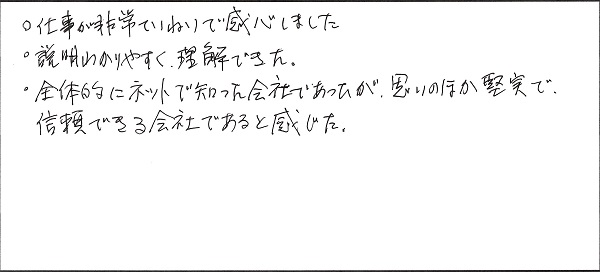 ○仕事が非常でいねいで感心しました
・説明わかりやすく、理解できた。
・全体的にネットで知った会社であったが、思いのほか堅実で、
信頼できる会社であると感じた。